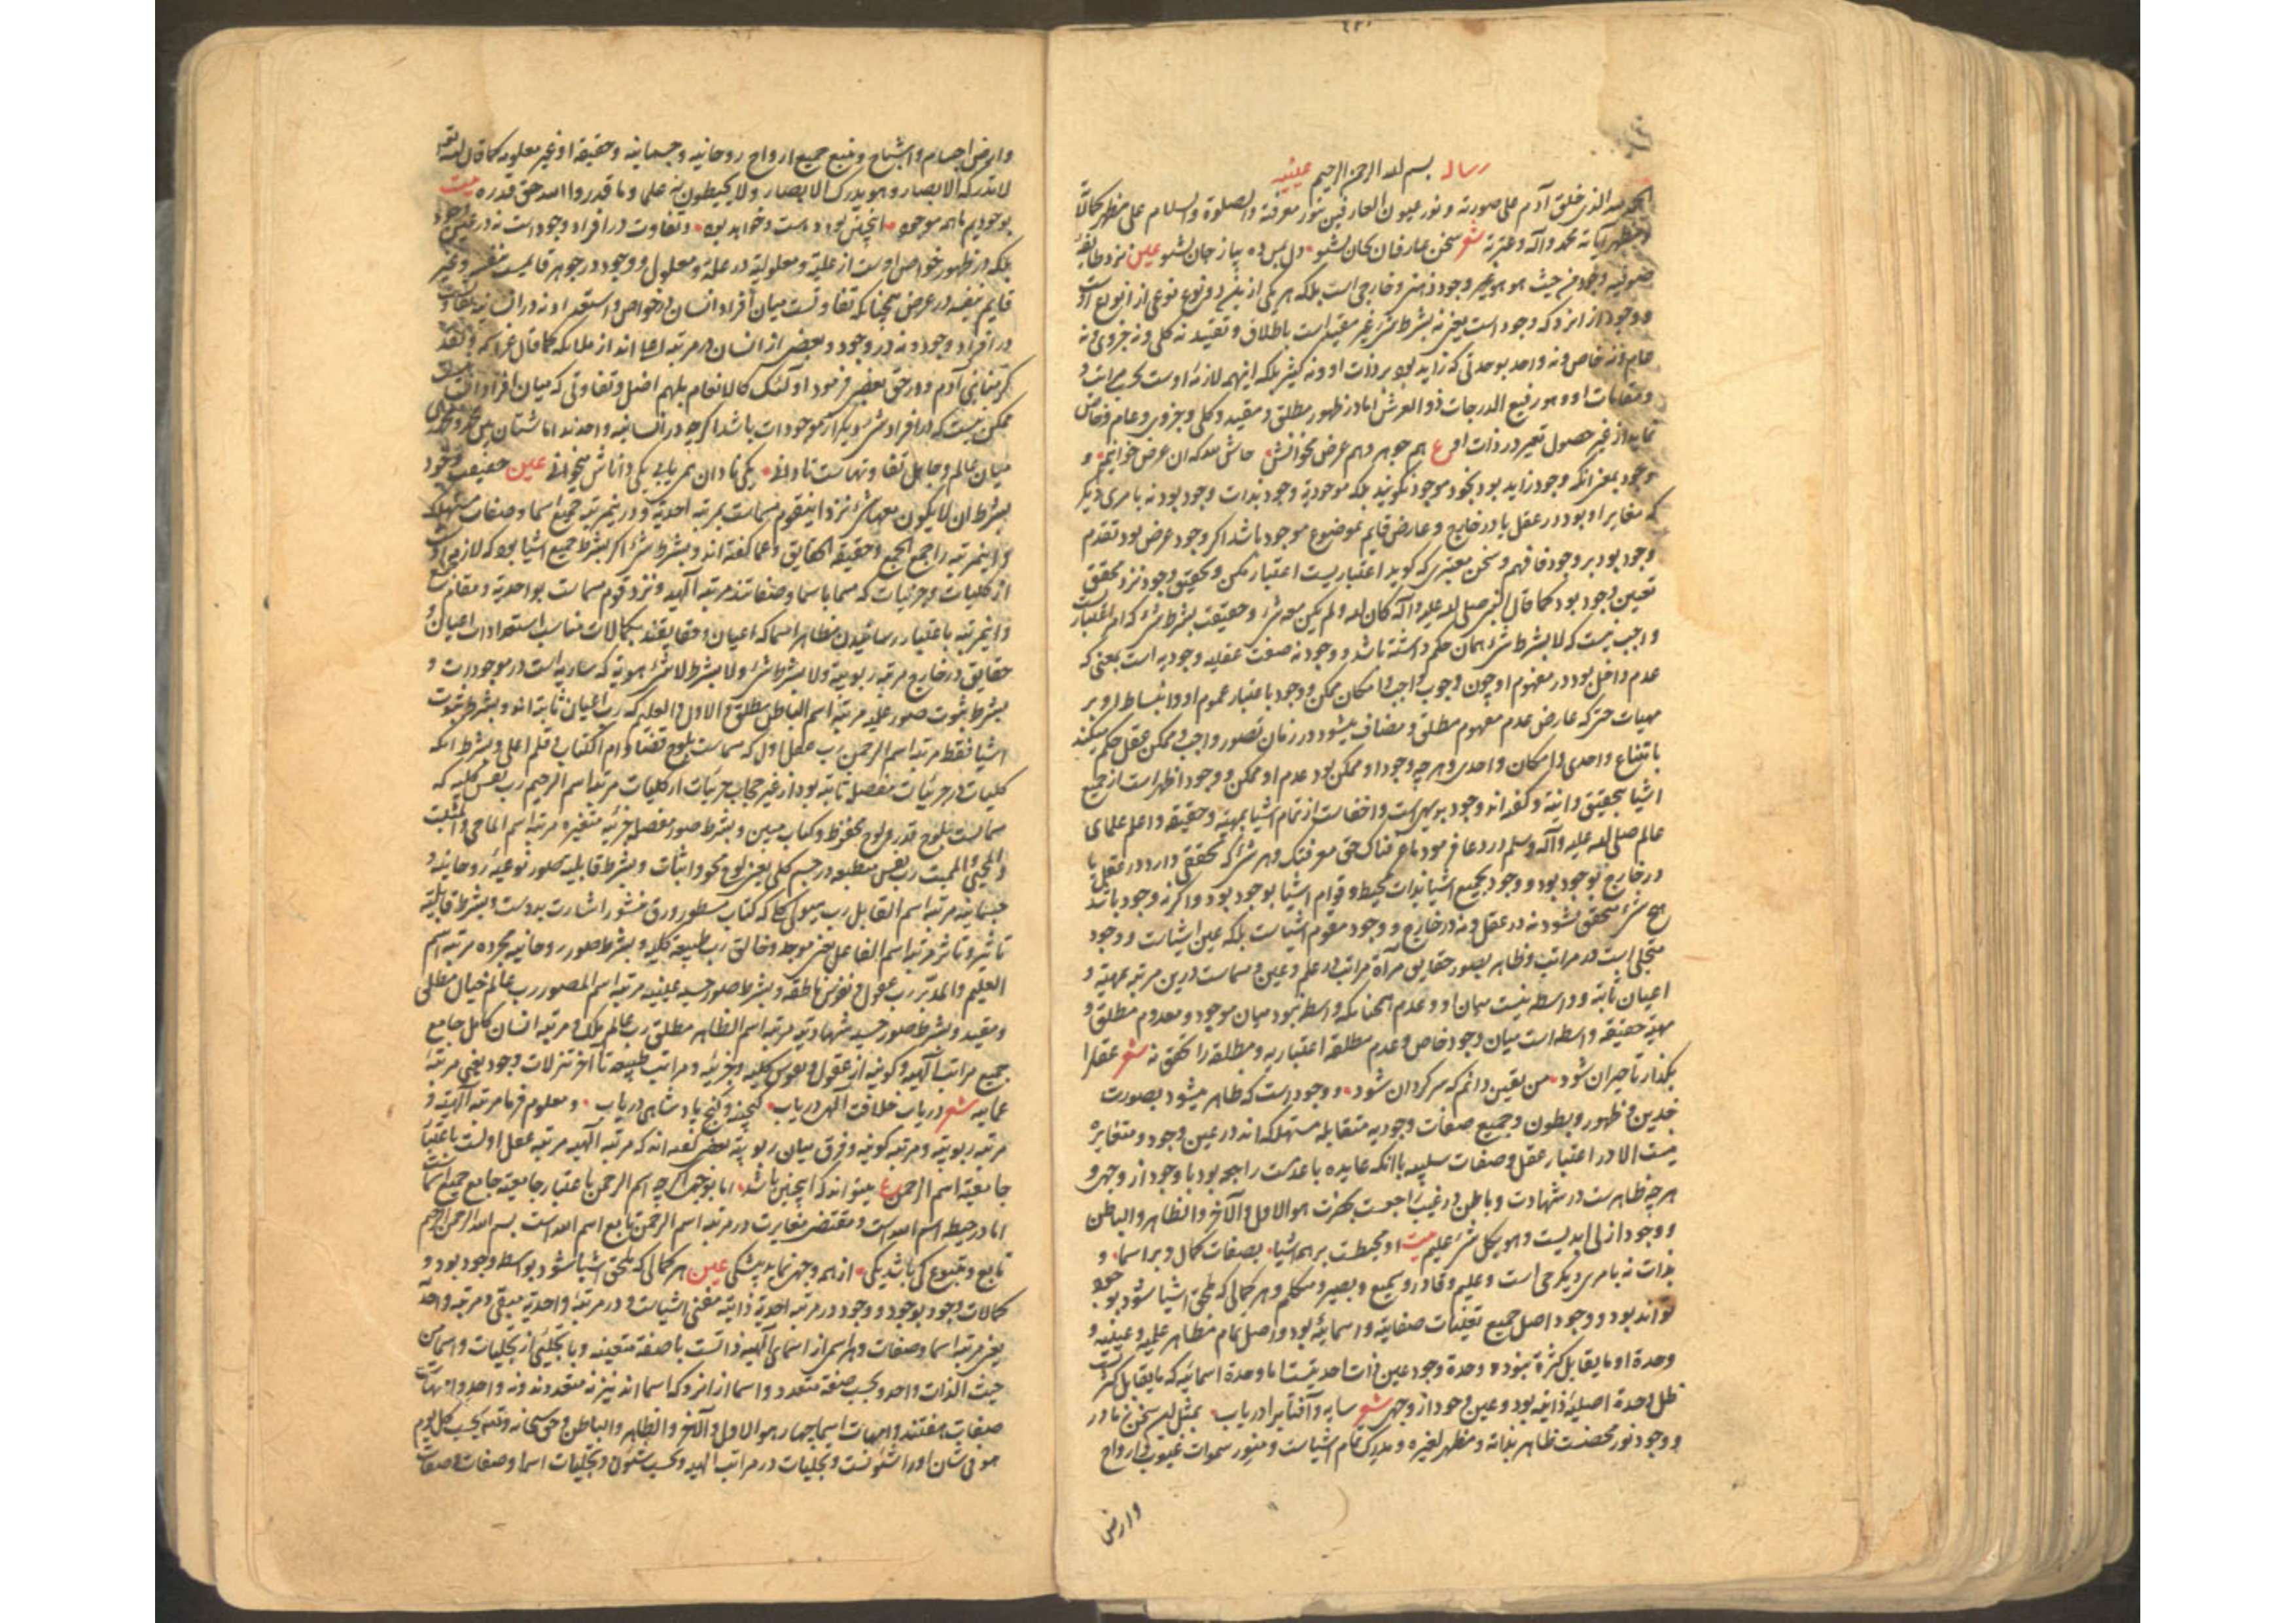 رساله بسم الله الرحمن الرحیم عینیه
الحمد لله الذی خلق آدم علی صورته و نور عیون العارفین بنور معرفته والصلوة والسلام علی مظهر کمالاته
و مظهر آیاته محمد وآله وعترته شعر سخن عارفان بجان بشنو دل پس ده بیا ز جان بشنو عین نزد طایفه
صوفیه وجود من حیث هو هو غیر وجود ذهنی و خارجی است بلکه هر یکی ازین دو نوع نوعی از انواع اوست
و وجود از انرو که وجود است یعنی نه بشرط شیء غیر مقید است باطلاق و تقیید نه کلی و نه جزوی و نه
عام و نه خاص و نه واحد بوحدتی که زاید بود بر ذات او و نه کثیر بلکه اینهمه لازمهٔ اوست بحسب مراتب
و مقامات او و هو رفیع الدرجات ذو العرش اما در ظهور مطلق و مقید و کلی و جزوی و عام و خاص
نماید از غیر حصول تغیر در ذات او ع هم جوهر و هم عرض مخوانش حاش لله که آن عرض خوانیم و
وجود بمعنی آنکه وجود زاید بود بخود موجود نگویند بلکه موجودیة وجود بذات وجود بود نه بامری دیگر
که مغایر او بود در عقل یا در خارج و عارض قایم بموضوع موجود باشد اگر وجود عرض بود تقدم
وجود بود بر وجود فافهم و سخن معتبری که گوید اعتباریست اعتبار مکن و تحقیق وجود نزد محقق
تعین وجود بود کما قال النبی صلی الله علیه وآله کان الله ولم یکن معه شیء و حقیقت بشرط شیء که امر اعتباریست
واجب نیست که لا بشرط شیء همان حکم داشته باشد و وجود نه صفت عقلیه وجودیه است بمعنی که
عدم داخل بود در مفهوم او چون وجوب واجب و امکان ممکن و وجود باعتبار عموم او و انبساط او بر
مهیات حتی که عارض عدم مفهوم مطلق و مضاف میشود در زمان تصور واجب و ممکن عقل حکم میکند
بامتناع واحدی و امکان واحدی و هر چه وجود او ممکن بود عدم او ممکن و وجود اظهر است از جمیع
اشیا بتحقیق و انیة و گفته‌اند وجود بدیهی است و اخفاست از تمام اشیا بمهیة و حقیقة و اعلم علمای
عالم صلی الله علیه وآله وسلم در دعا فرمود ما عرفناک حق معرفتک و هر شیء که تحققی دارد در عقل یا
در خارج بوجود بود و وجود بجمیع اشیا بذات محیط و قوام اشیا بوجود بود و اگر نه وجود باشد
هیچ شیء متحقق نشود نه در عقل و نه در خارج و وجود مقوم اشیاست بلکه عین اشیاست و وجود
متجلی است در مراتب و ظاهر بصور حقایق مرآة مراتب در علم و عین و مسماست درین مرتبه بمهیة و
اعیان ثابته و واسطه نیست میان او و عدم همچنانکه واسطه نبود میان موجود و معدوم مطلق و
مهیة حقیقه واسطه است میان وجود خاص و عدم مطلقه اعتباریه و مطلقه را تحقق نه شعر عقل را
بگذار تا حیران شود من یقین دانم که سرگردان شود و وجود است که ظاهر میشود بصورت
ضدین و ظهور و بطون و جمیع صفات وجودیه متقابله مستهلکه‌اند در عین وجود و متغایره
نیست الا در اعتبار عقل و صفات سلبیه با آنکه عایده با عدمست راجعه بود با وجود از وجهی و
هر چه ظاهر است در شهادت و باطن در غیب راجعست بحضرت هو الاول والآخر والظاهر والباطن
و وجود ازلی ابدیست وهو بکل شیء علیم بیت او محیطست بر همه اشیا بصفات کمال و بر اسما و
بذات نه بامری دیگر حی است و علیم و قادر و سمیع و بصیر و متکلم و هر کمالی که ملحق اشیا شود بوجود
تواند بود و وجود اصل جمیع تعینات صفاتیه و اسمائیه بود و اصل تمام مظاهر علمیه و عینیه و
وحدة او ما یقابل کثرة نبود و وحدة وجود عین ذات احدیتست اما وحدة اسمائیه که ما یقابل کثرتست
ظل وحدة اصلیهٔ ذاتیه بود و عین وجود از وجهی شعر سایه و آفتاب را دریاب بمثل این سخن ز ما دریاب
و وجود نور محضست ظاهر بذاته و مظهر لغیره و مدرک تمام اشیاست و منور سموات غیوب و ارواح
وارض
وارض اجسام و اشباح و منبع جمیع ارواح روحانیه و جسمانیه و حقیقة او غیر معلومه کما قال الله تعالی
لا تدرکه الابصار وهو یدرک الابصار ولا یحیطون به علما وما قدروا الله حق قدره بیت
بوجودیم ما همه موجود اینچنین بود و هست و خواهد بود و تفاوت در افراد وجود است نه در عین وجود
بلکه در ظهور خواص اوست از علیة و معلولیة در علة و معلول و وجود در جوهر قایمست بنفس و غیر
قایم بنفس در عرض همچنانکه تفاوتست میان افراد انسان در خواص و استعداد و نه در انسانیة
در افراد وجود و نه در وجود و بعضی از انسان در مرتبه اعلی‌اند از ملائکه کما قال عز اسمه ولقد
کرمنا بنی آدم و در حق بعضی فرمود اولئک کالانعام بل هم اضل و تفاوتی که میان افراد انسانست
ممکن نیست که در افراد شیء دیگر از موجودات باشد اگر چه در انسانیة واحدند اما شتان
میان عالم و جاهل تفاوتهاست تا دانی یکی نادان همی یابی یکی داناش میخوانی عین حقیقت وجود
بشرط ان لا یکون معها شیء نزد این قوم مسماست بمرتبه احدیة و درین مرتبه جمیع اسما و صفات مستهلک
و این مرتبه را جمع الجمع و حقیقة الحقایق و عما گفته‌اند و بشرط شیء اگر بشرط جمیع اشیا بود که لازمهٔ او
از کلیات و جزئیات که مسما باسما و صفاتند مرتبه الهیه و نزد قوم مسماست بواحدیة و مقام جمع
و این مرتبه باعتبار رسانیدن مظاهر اسما که اعیان و حقایقند بکمالات مناسب استعدادات اعیان و
حقایق در خارج مرتبه ربوبیة و لا بشرط شیء و لا بشرط لا شیء هویة که ساریه است در موجودات و
بشرط ثبوت صور علمیه مرتبه اسم الباطن مطلق و الاول و العلیم که رب اعیان ثابته‌اند و بشرط ثبوت
اشیا فقط مرتبه اسم الرحمن رب عقل اول که مسماست بلوح قضا و ام الکتاب و قلم اعلی و بشرط آنکه
کلیات در جزئیات مفصل ثابته بود از غیر حجاب جزئیات از کلیات مرتبه اسم الرحیم رب نفس کلیه که
مسماست بلوح قدر و لوح محفوظ و کتاب مبین و بشرط صور مفصله جزئیه متغیره مرتبه اسم الماحی و المثبت
و المحیی و الممیت رب نفس منطبعه در جسم کلی یعنی لوح محو و اثبات و بشرط قابلیه صور نوعیه روحانیه و
جسمانیه مرتبه اسم القابل رب هیولی کلیه که کتاب مسطور و رق منشور اشارت بدوست و بشرط قابلیة
تأثیر و تأثر مرتبه اسم الفاعل یعنی موجد و خالق رب طبیعة کلیه و بشرط صور روحانیه مجرده مرتبه اسم
العلیم و المدبر رب عقول و نفوس ناطقه و بشرط صور حسیه غیبیه مرتبه اسم المصور رب عالم خیال مطلق
و مقید و بشرط صور حسیه شهادتیه مرتبه اسم الظاهر مطلق رب عالم ملک و مرتبه انسان کامل جامع
جمیع مراتب الهیه و کونیه از عقول و نفوس کلیه و جزئیه و مراتب طبیعة تا آخر تنزلات وجود یعنی مرتبهٔ
عمائیه شعر دریاب خلافت الهی دریاب گنجینه و گنج پادشاهی دریاب و معلوم فرما مرتبه الهیة و
مرتبه ربوبیة و مرتبه کونیه و فرق میان ربوبیة بعضی گفته‌اند که مرتبه الهیه مرتبه عقل اولست باعتبار
جامعیة اسم الرحمن ع میتواند که اینچنین باشد اما بوجهی اگر چه اسم الرحمن باعتبار جامعیة جامع جمیع اسماست
اما در حیطه اسم الله است و مقتضی مغایرت در مرتبه اسم الرحمن تابع اسم الله است بسم الله الرحمن الرحیم
تابع و متبوع کی باشد یکی از همه وجهی نماید بیشکی عین هر کمالی که ملحق اشیا شود بواسطه وجود بود و
کمالات وجود بوجود و وجود در مرتبه احدیة ذاتیه مغنی اشیاست و در مرتبهٔ واحدیة مبقی و مرتبه واحدیة
یعنی مرتبه اسما و صفات و هر اسمی از اسمای الهیه ذاتست با صفة متعینه و با تجلئی از تجلیات و اسما من
حیث الذات واحد و بحسب صفة متعدد و اسما از انرو که اسمااند نیز نه متحدند و نه واحد و امهات
صفات هفتند و امهات اسما چهار هو الاول والآخر والظاهر والباطن و حق سبحانه و تعالی بحسب کل یوم
هو فی شان او را شئونست و تجلیات در مراتب الهیه و بحسب شئون و تجلیات اسما و صفات و صفات